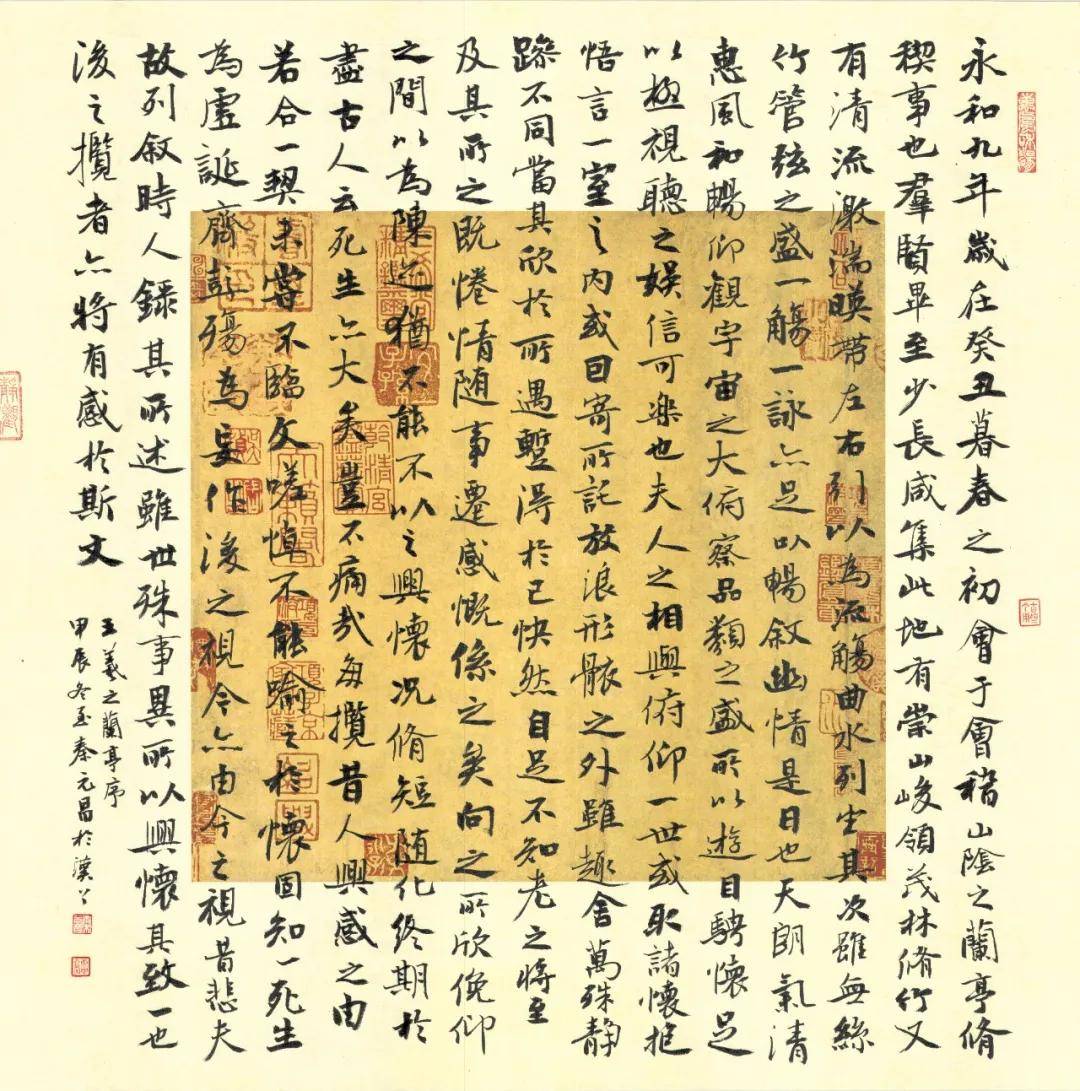 永和九年歲在癸丑暮春之初會于會稽山陰之蘭亭脩
稧事也羣賢畢至少長咸集此地有崇山峻領茂林脩竹又
有清流激湍暎帶左右引以為流觴曲水列坐其次雖無絲
竹管弦之盛一觴一詠亦足以暢敘幽情是日也天朗氣清
惠風和暢仰觀宇宙之大俯察品類之盛所以遊目騁懷足
以極視聽之娛信可樂也夫人之相與俯仰一世或取諸懷抱
悟言一室之內或因寄所託放浪形骸之外雖趣舍萬殊静
躁不同當其欣於所遇蹔得於己快然自足不知老之將至
及其所之既惓情随事遷感慨係之矣向之所欣俛仰
之間以為陳迹猶不能不以之興懷况脩短随化終期於
盡古人云死生亦大矣豈不痛哉每攬昔人興感之由
若合一契未嘗不臨文嗟悼不能喻之於懷固知一死生
為虛誕齊彭殤為妄作後之視今亦由今之視昔悲夫
故列敘時人錄其所述雖世殊事異所以興懷其致一也
後之攬者亦將有感於斯文
王羲之蘭亭序
甲辰冬至秦元昌於漢上
乾清宮